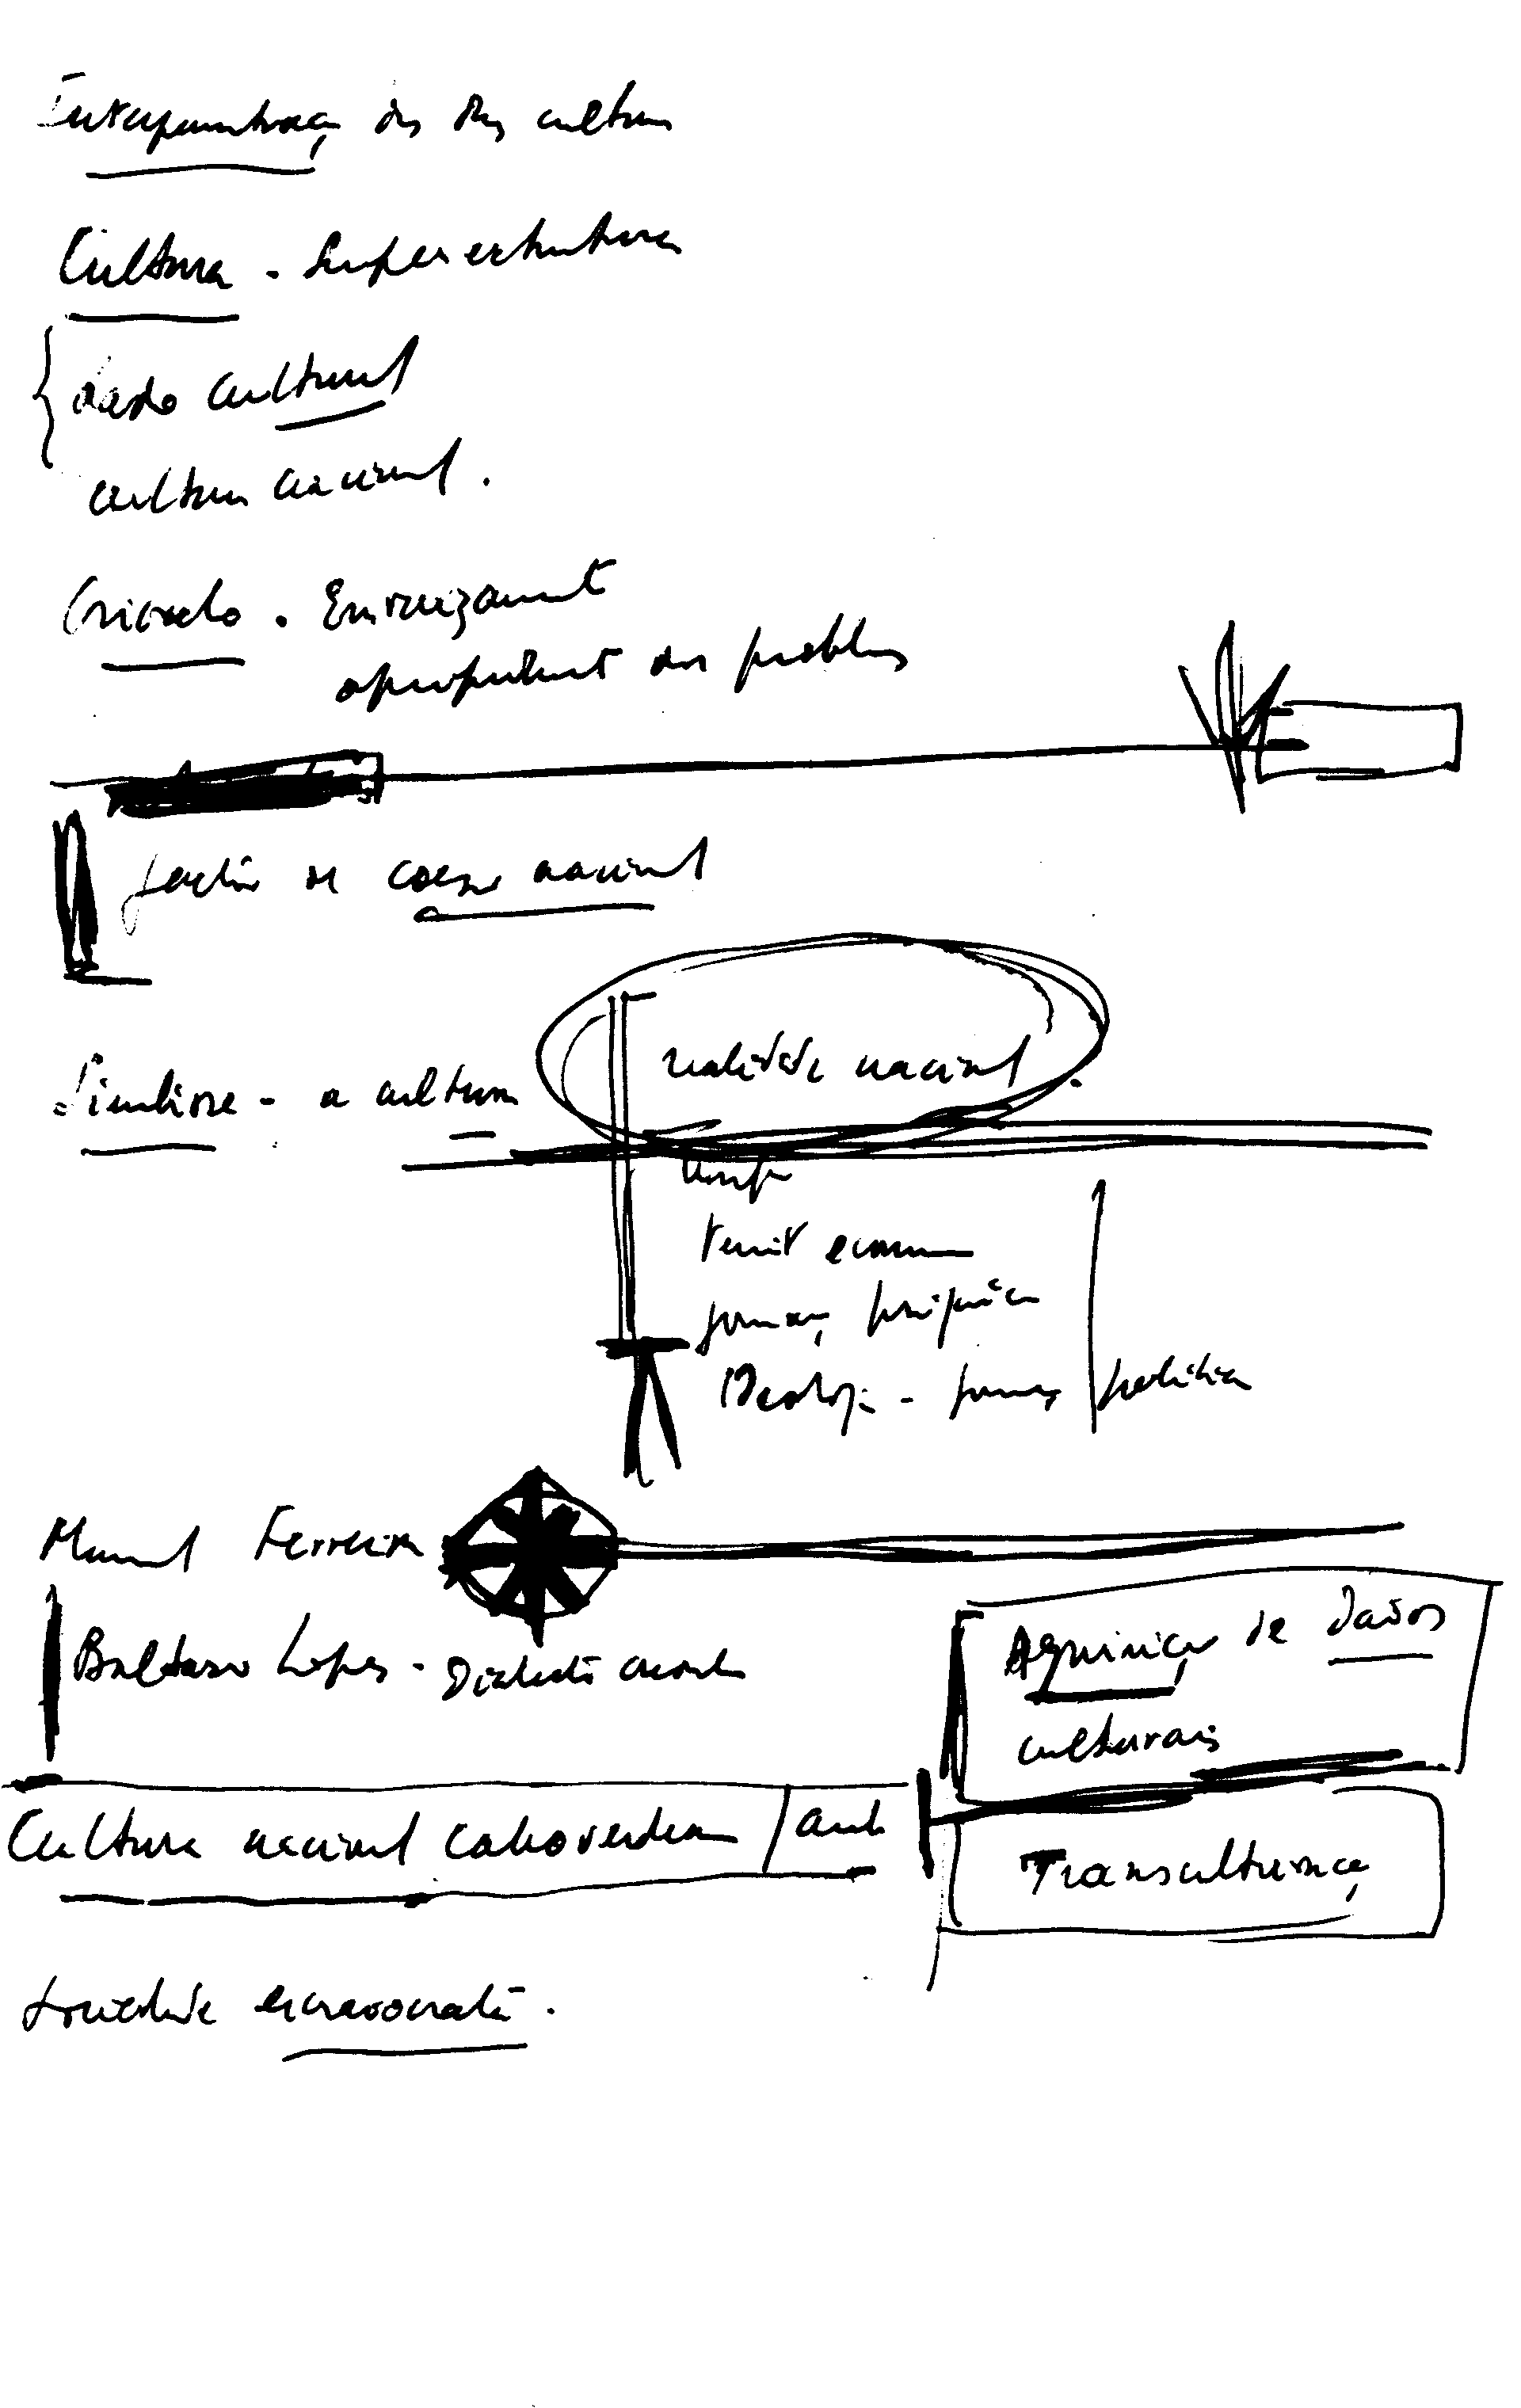 Interpenetração das duas culturas
Cultura - Superestrutura
dado cultural
cultura nacional.
Crioulo. Enraizamento
dos problemas
factor de coesão nacional
Simbiose - a cultura
realidade nacional.
Territ econom
formaç psíquica
Ideologi - formaç política
Manuel Ferreira
Baltasar Lopes - Dialecto crioulo
Aquisição de dados
culturais
Cultura nacional caboverdeana /
Transculturação
sociedade escravocrata.